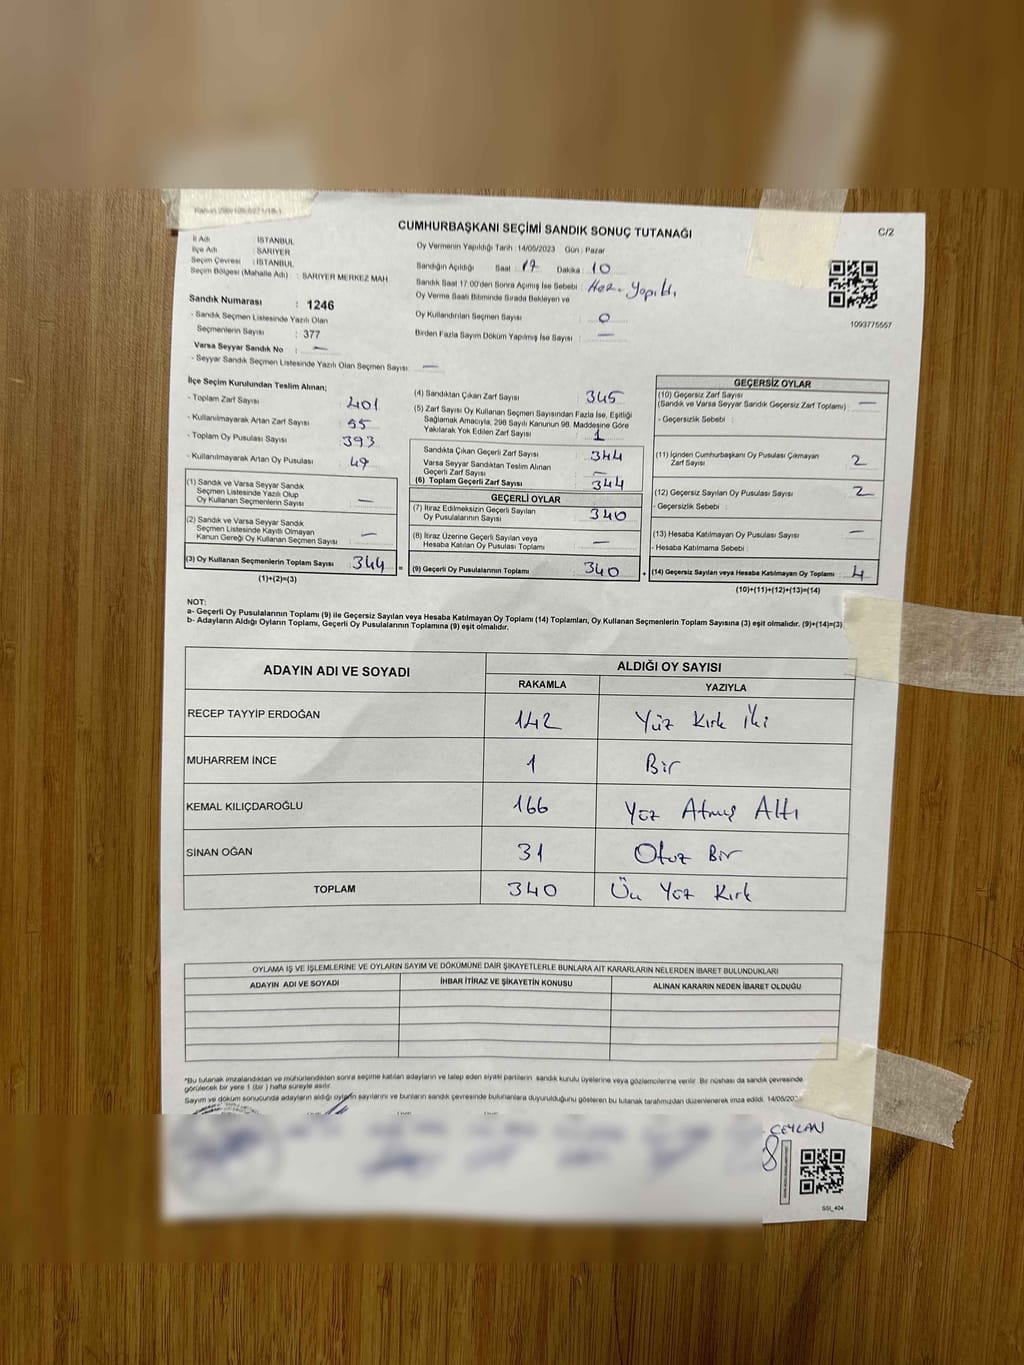 CUMHURBAŞKANI SEÇİMİ SANDIK SONUÇ TUTANAĞI
C/2
İl Adı : İSTANBUL
İlçe Adı : SARIYER
Seçim Çevresi : İSTANBUL
Seçim Bölgesi (Mahalle Adı) : SARIYER MERKEZ MAH
Sandık Numarası : 1246
- Sandık Seçmen Listesinde Yazılı Olan
Seçmenlerin Sayısı : 377
Varsa Seyyar Sandık No : —
- Seyyar Sandık Seçmen Listesinde Yazılı Olan Seçmen Sayısı: —
Oy Vermenin Yapıldığı Tarih : 14/05/2023 Gün : Pazar
Sandığın Açıldığı Saat : 17 Dakika : 10
Sandık Saat 17.00'den Sonra Açılmış İse Sebebi : Haz. Yapıldı
Oy Verme Saati Bitiminde Sırada Bekleyen ve
Oy Kullandırılan Seçmen Sayısı : 0
Birden Fazla Sayım Döküm Yapılmış İse Sayısı : —
1093775557
İlçe Seçim Kurulundan Teslim Alınan;
- Toplam Zarf Sayısı : 401
- Kullanılmayarak Artan Zarf Sayısı : 55
- Toplam Oy Pusulası Sayısı : 393
- Kullanılmayarak Artan Oy Pusulası : 49
(1) Sandık ve Varsa Seyyar Sandık
Seçmen Listesinde Yazılı Olup
Oy Kullanan Seçmenlerin Sayısı : —
(2) Sandık ve Varsa Seyyar Sandık
Seçmen Listesinde Kayıtlı Olmayan
Kanun Gereği Oy Kullanan Seçmen Sayısı : —
(3) Oy Kullanan Seçmenlerin Toplam Sayısı : 344
(1)+(2)=(3)
(4) Sandıktan Çıkan Zarf Sayısı : 345
(5) Zarf Sayısı Oy Kullanan Seçmen Sayısından Fazla İse, Eşitliği
Sağlamak Amacıyla, 298 Sayılı Kanunun 98. Maddesine Göre
Yakılarak Yok Edilen Zarf Sayısı : 1
Sandıkta Çıkan Geçerli Zarf Sayısı : 344
Varsa Seyyar Sandıktan Teslim Alınan
Geçerli Zarf Sayısı : —
(6) Toplam Geçerli Zarf Sayısı : 344
GEÇERLİ OYLAR
(7) İtiraz Edilmeksizin Geçerli Sayılan
Oy Pusulalarının Sayısı : 340
(8) İtiraz Üzerine Geçerli Sayılan veya
Hesaba Katılan Oy Pusulası Toplamı : —
(9) Geçerli Oy Pusulalarının Toplamı : 340
GEÇERSİZ OYLAR
(10) Geçersiz Zarf Sayısı
(Sandık ve Varsa Seyyar Sandık Geçersiz Zarf Toplamı) : —
- Geçersizlik Sebebi :
(11) İçinden Cumhurbaşkanı Oy Pusulası Çıkmayan
Zarf Sayısı : 2
(12) Geçersiz Sayılan Oy Pusulası Sayısı : 2
- Geçersizlik Sebebi :
(13) Hesaba Katılmayan Oy Pusulası Sayısı : —
- Hesaba Katılmama Sebebi :
(14) Geçersiz Sayılan veya Hesaba Katılmayan Oy Toplamı : 4
(10)+(11)+(12)+(13)=(14)
NOT:
a- Geçerli Oy Pusulalarının Toplamı (9) ile Geçersiz Sayılan veya Hesaba Katılmayan Oy Toplamı (14) Toplamları, Oy Kullanan Seçmenlerin Toplam Sayısına (3) eşit olmalıdır. (9)+(14)=(3)
b- Adayların Aldığı Oyların Toplamı, Geçerli Oy Pusulalarının Toplamına (9) eşit olmalıdır.
ADAYIN ADI VE SOYADI ALDIĞI OY SAYISI
RAKAMLA YAZIYLA
RECEP TAYYİP ERDOĞAN 142 Yüz Kırk İki
MUHARREM İNCE 1 Bir
KEMAL KILIÇDAROĞLU 166 Yüz Atmış Altı
SİNAN OĞAN 31 Otuz Bir
TOPLAM 340 Üç Yüz Kırk
OYLAMA İŞ VE İŞLEMLERİNE VE OYLARIN SAYIM VE DÖKÜMÜNE DAİR ŞİKAYETLERLE BUNLARA AİT KARARLARIN NELERDEN İBARET BULUNDUKLARI
ADAYIN ADI VE SOYADI İHBAR İTİRAZ VE ŞİKAYETİN KONUSU ALINAN KARARIN NEDEN İBARET OLDUĞU
*Bu tutanak imzalandıktan ve mühürlendikten sonra seçime katılan adayların ve talep eden siyasi partilerin sandık kurulu üyelerine veya gözlemcilerine verilir. Bir nüshası da sandık çevresinde
görülecek bir yere 1 (bir) hafta süreyle asılır.
Sayım ve döküm sonucunda adayların aldığı oyların sayılarını ve bunların sandık çevresinde bulunanlara duyurulduğunu gösteren bu tutanak tarafımızdan düzenlenerek imza edildi.
CEYLAN
SSI_404